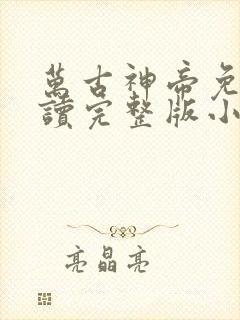 萬古神帝免
讀完整版小
亮晶亮